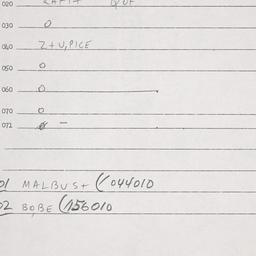 020
030 0
040 Z+U,PICE
050 0
060 0
070 0
072 0 –
01 MALBUS+ (044010
02 BOBE (156010